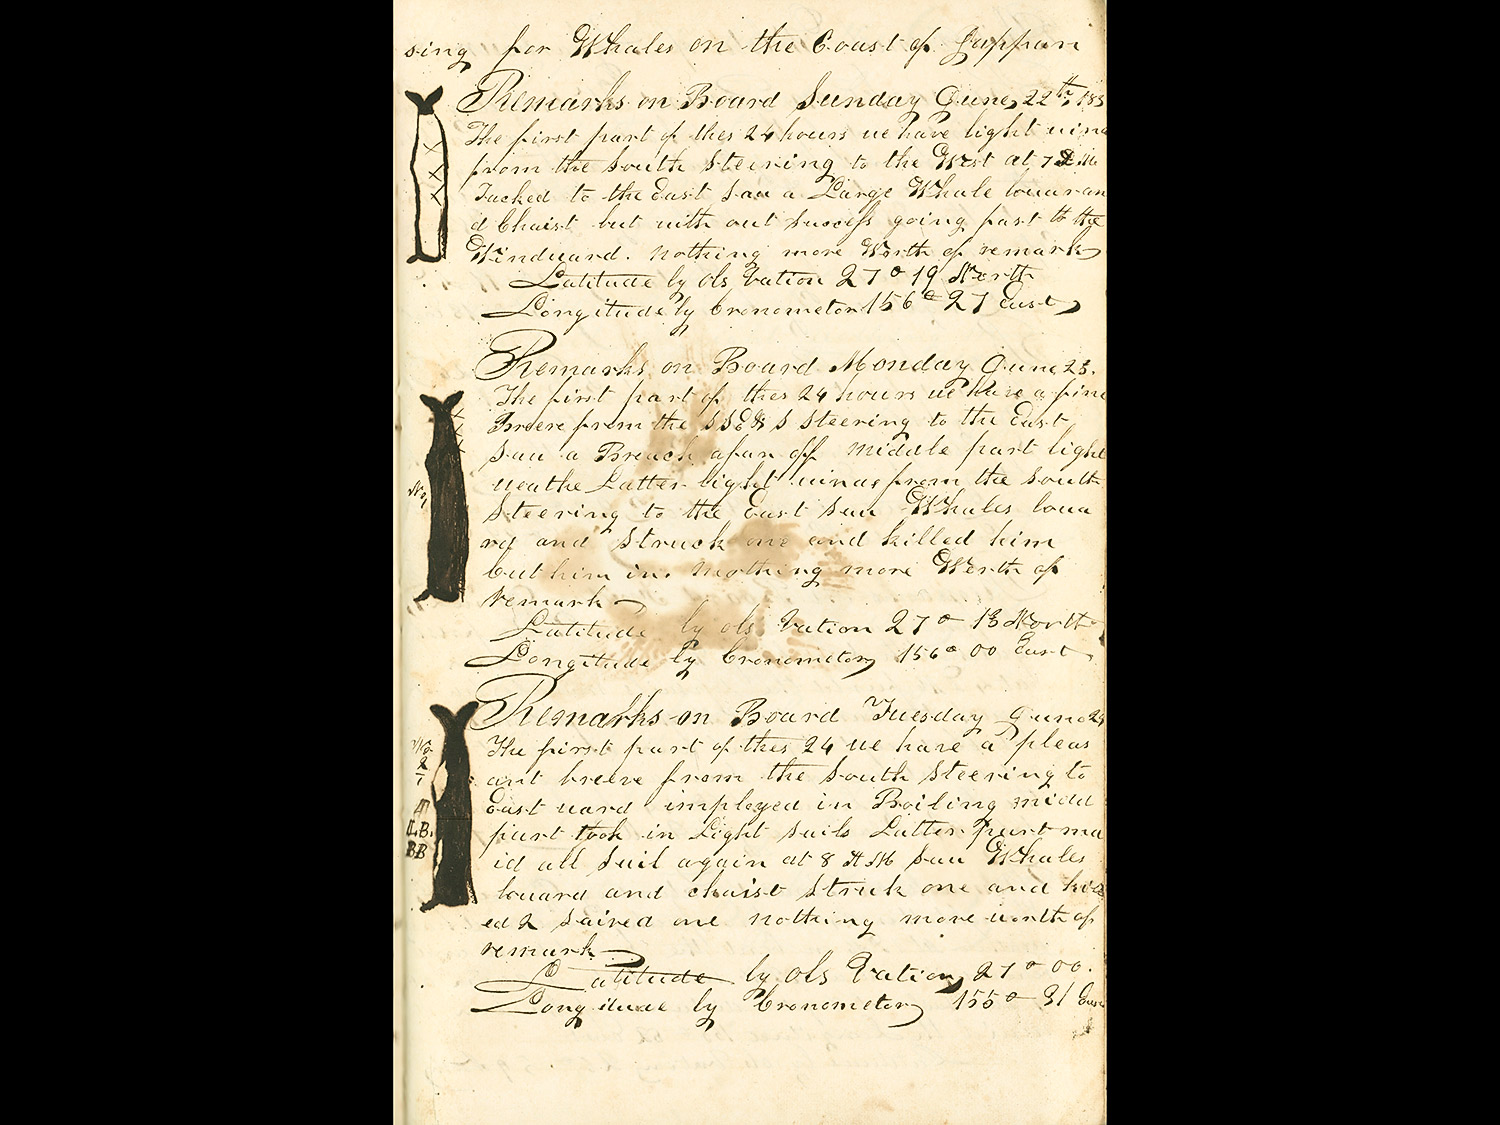 sing for Whales on the Coast of Jappan
Remarks on Board Sunday June 22th 183
The first part of thes 24 hours we have light wind
from the South Steering to the West at 7
Tacked to the East Saw a Large Whale louaran
d Chaist but with out Success going fast to the
Windward. nothing more Worth of remark
Latitude by obs Vation 27° 19 North
Longitude by Cronometor 156° 27 East
Remarks on Board Monday June 23.
The first part of thes 24 hours we have a fine
Breere from the SSE & S Steering to the East
Saw a Breach afar off middle part light
weathe Latter light winds from the South
Steering to the East Saw Whales loua
rd and Struck one and killed him
Cut him in. Nothing more Werth of
remark
Latitude by obs Vation 27° 13 North
Longitude by Cronometor 156° 00 East
Remarks on Board Tuesday June 24
The first part of thes 24 we have a pleas
ant breeve from the South Steering to
East ward imployed in Boiling midd
part took in Light Sails Latter part ma
id all Sail again at 8 AM Saw Whales
louard and chaist Struk one and
ed 2 Saived one nothing more worth of
remark
Latitude by obs Vation 27° 00.
Longitude by Cronometor 155° 31 East
No
2
T
LB.
BB